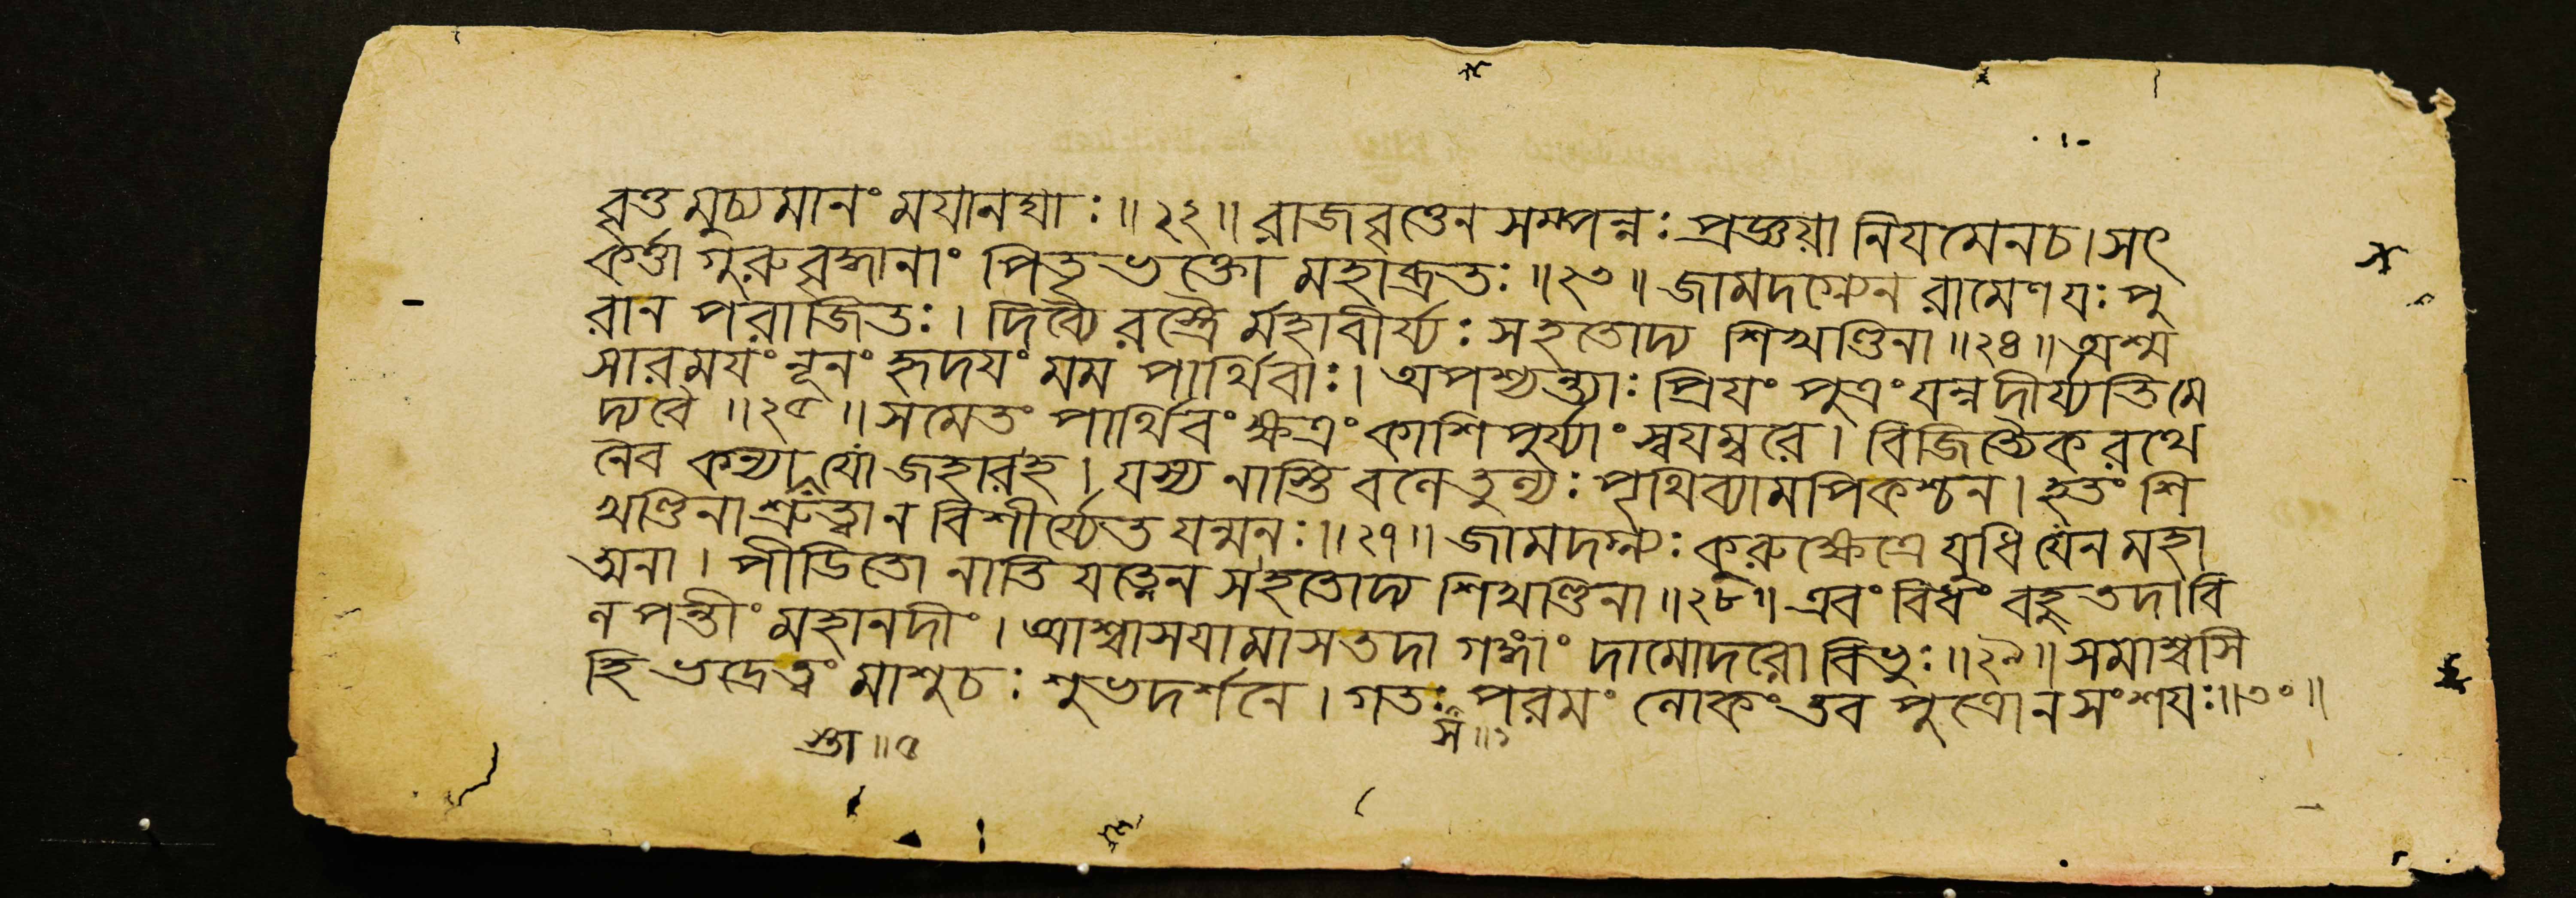 বৃত্তমুচ্যমানং ময়ানঘাঃ ॥ ২২ ॥ রাজবৃত্তেন সম্পন্নঃ প্রজ্ঞয়া নিয়মেনচ। সৎ
কর্ত্তা গুরুবৃদ্ধানাং পিতৃভক্তো মহাব্রতঃ ॥ ২৩ ॥ জামদগ্ন্যেন রামেণ যঃ পু
রান পরাজিতঃ । দিব্যৈরস্ত্রৈর্মহাবীর্য্যঃ সহতোদ্য শিখণ্ডিনা ॥ ২৪ ॥ অশ্ম
সারময়ং নূনং হৃদয়ং মম পার্থিবাঃ । অপশ্যন্ত্যাঃ প্রিয়ং পুত্রং যন্ন দীর্য্যতি মে
দ্যবৈ ॥ ২৫ ॥ সমেতং পার্থিবং ক্ষত্রং কাশিপুর্য্যাং স্বয়ম্বরে । বিজিত্যৈকরথে
নৈব কন্যা যো জহারহ । যস্য নাস্তি বলে তুল্যঃ পৃথিব্যামপি কশ্চন । হতং শি
খণ্ডিনা শ্রুত্বা ন বিশীর্য্যেত যন্মনঃ ॥ ২৭ ॥ জামদগ্ন্যঃ কুরুক্ষেত্রে যুধি যেন মহা
ত্মনা । পীডিতো নাতি যত্নেন সহতোদ্য শিখণ্ডিনা ॥ ২৮ ॥ এবং বিধং বহু তদা বি
লপন্তীং মহানদীং । আশ্বাসয়ামাস তদা গঙ্গাং দামোদরো বিভুঃ ॥ ২৯ ॥ সমাশ্বসি
হি ভদ্রে ত্বং মাশুচঃ শুভদর্শনে । গতঃ পরমং লোকং তব পুত্রো ন সংশয়ঃ ॥ ৩০ ॥
স ॥